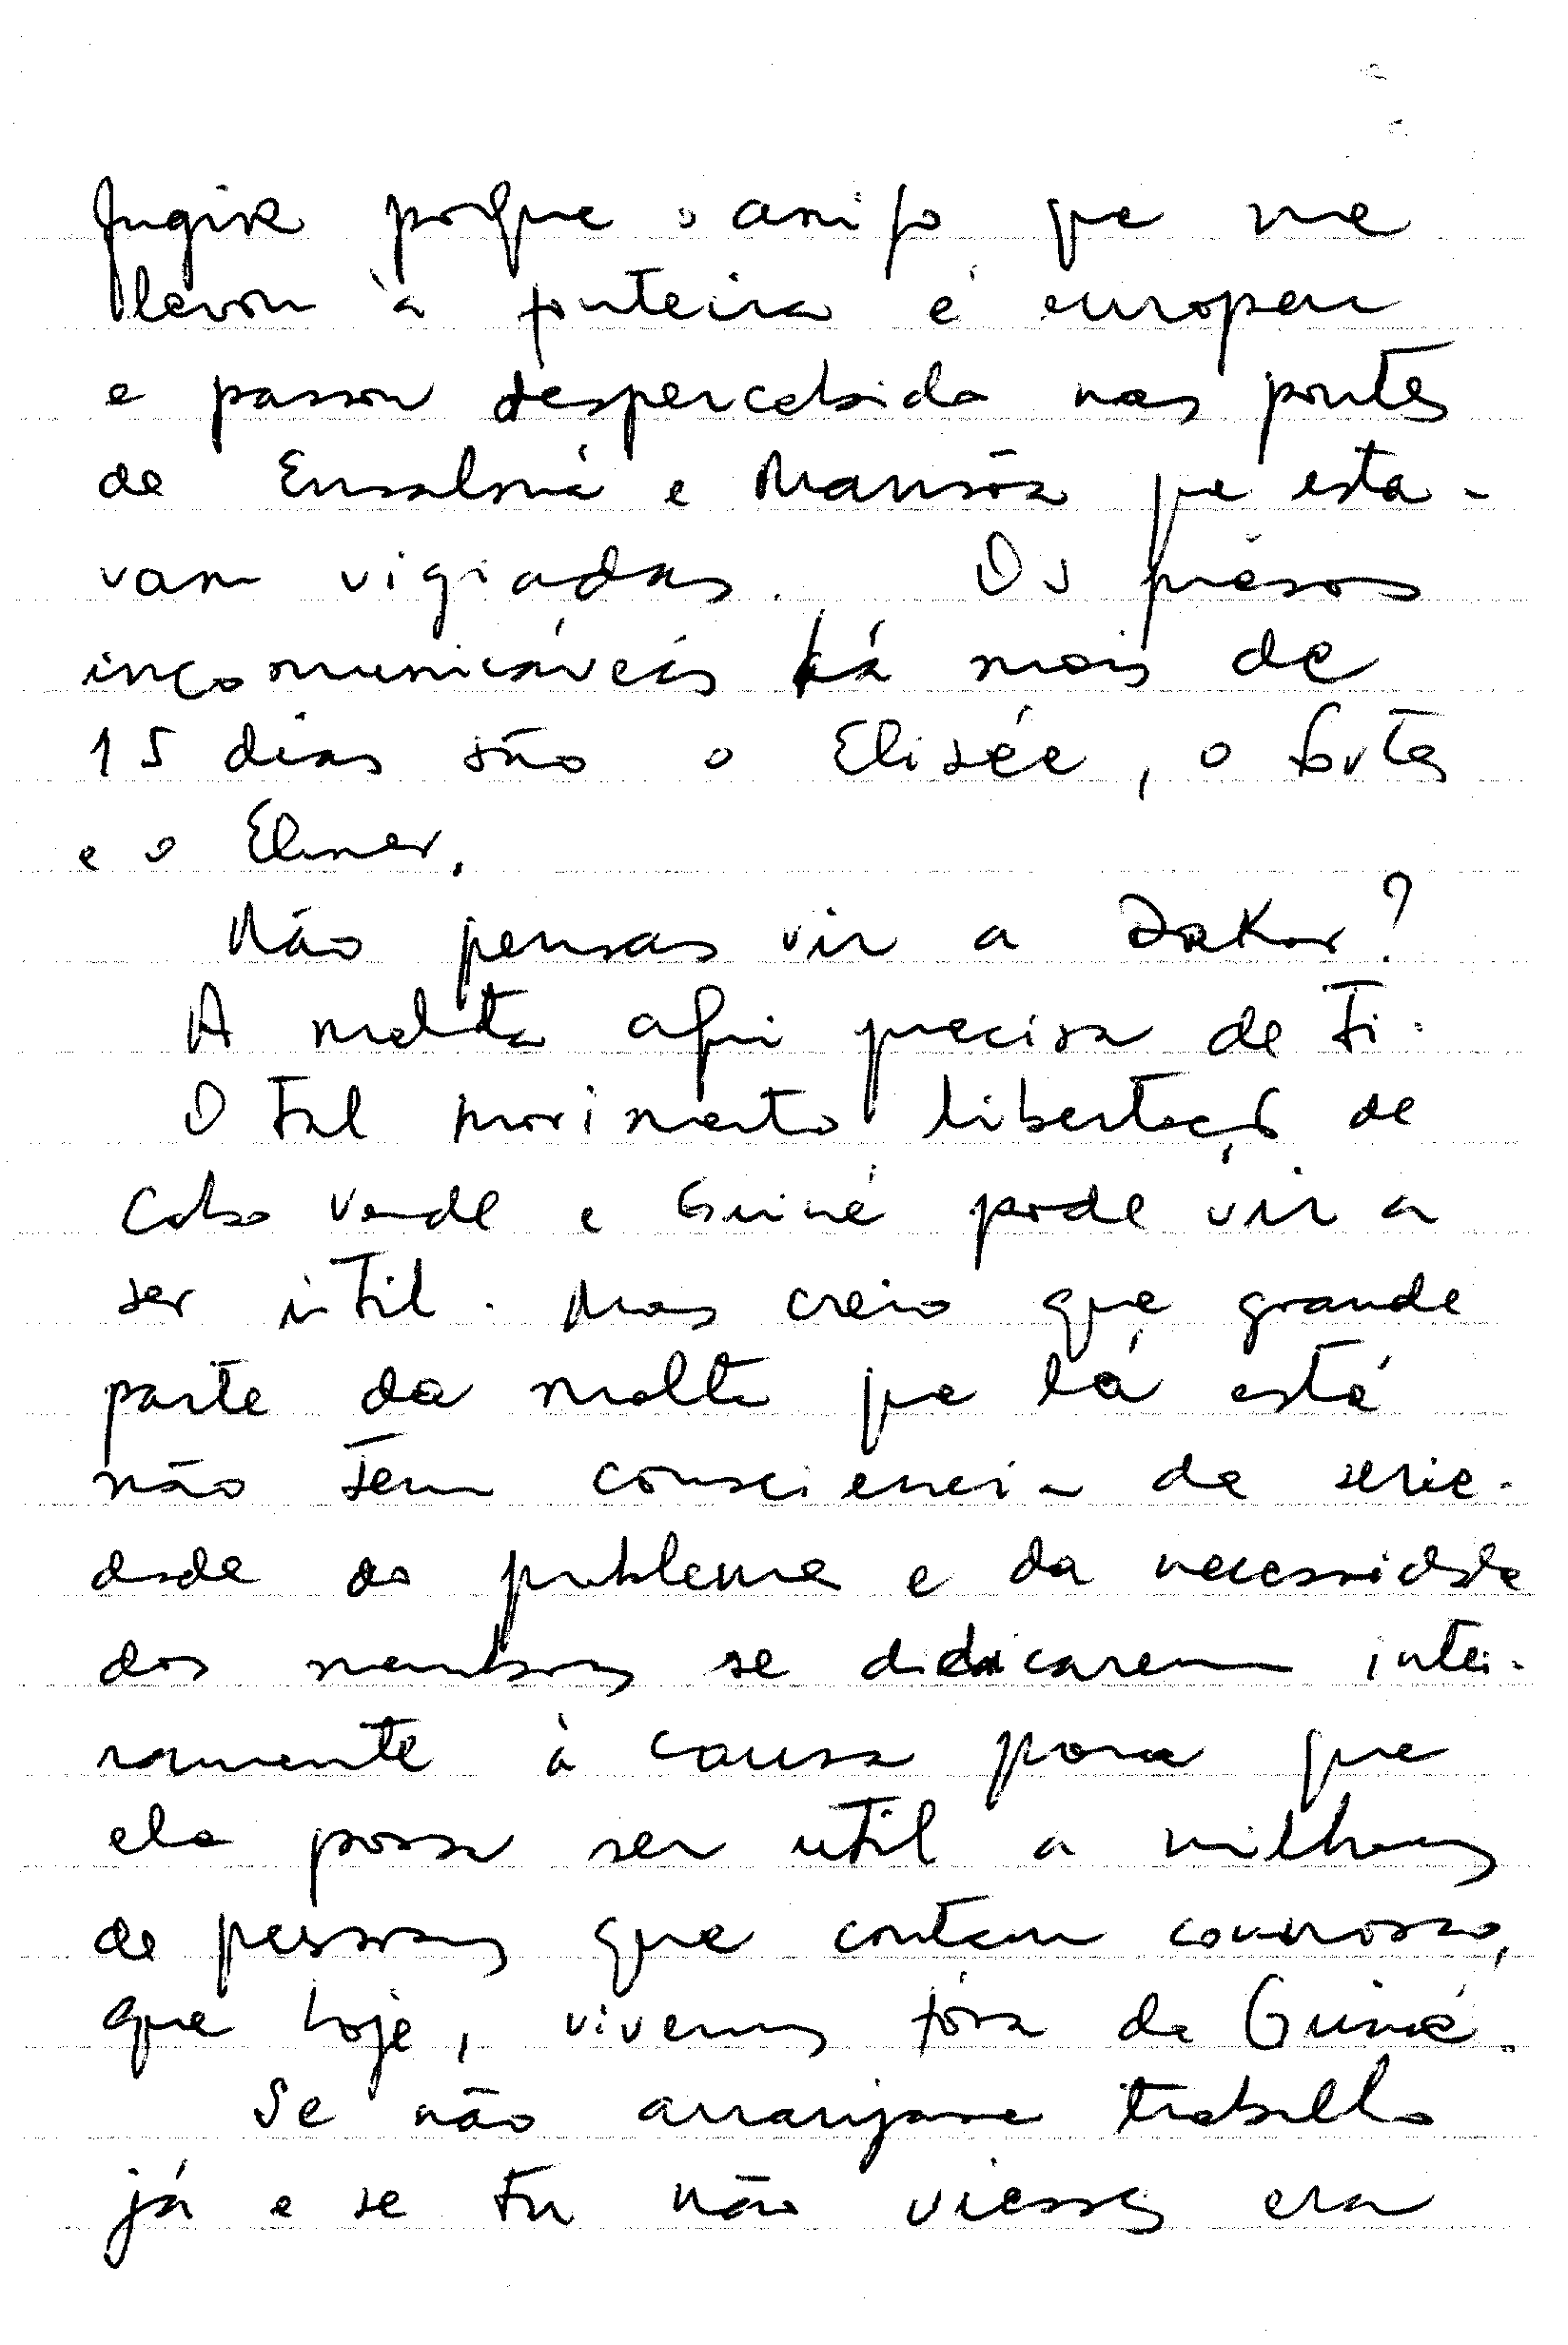 fugir porque o amigo que me
levou à fronteira é europeu
e passou despercebido nas pontes
de Ensalmá e Mansôa que esta-
vam vigiadas. Os presos
incomunicáveis há mais de
15 dias são o Elisée, o Fortes
e o Elmer.
Não pensas vir a Dakar?
A malta aqui precisa de ti.
O tal movimento libertação de
Cabo Verde e Guiné pode vir a
ser útil. Mas creio que grande
parte da malta que lá está
não tem consciencia da serie-
dade do problema e da necessidade
dos membros se didicarem intei-
ramente à causa para que
ela possa ser util a milhares
de pessoas que contam connosco,
que hoje, vivemos fóra da Guiné.
Se não arranjasse trabalho
já e se tu não viesses era